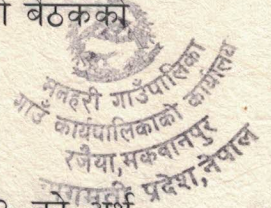 बैठकको
मनहरी गाउँपालिका
गाउँ कार्यपालिकाको कार्यालय
रजैया, मकवानपुर
बागमती प्रदेश, नेपाल